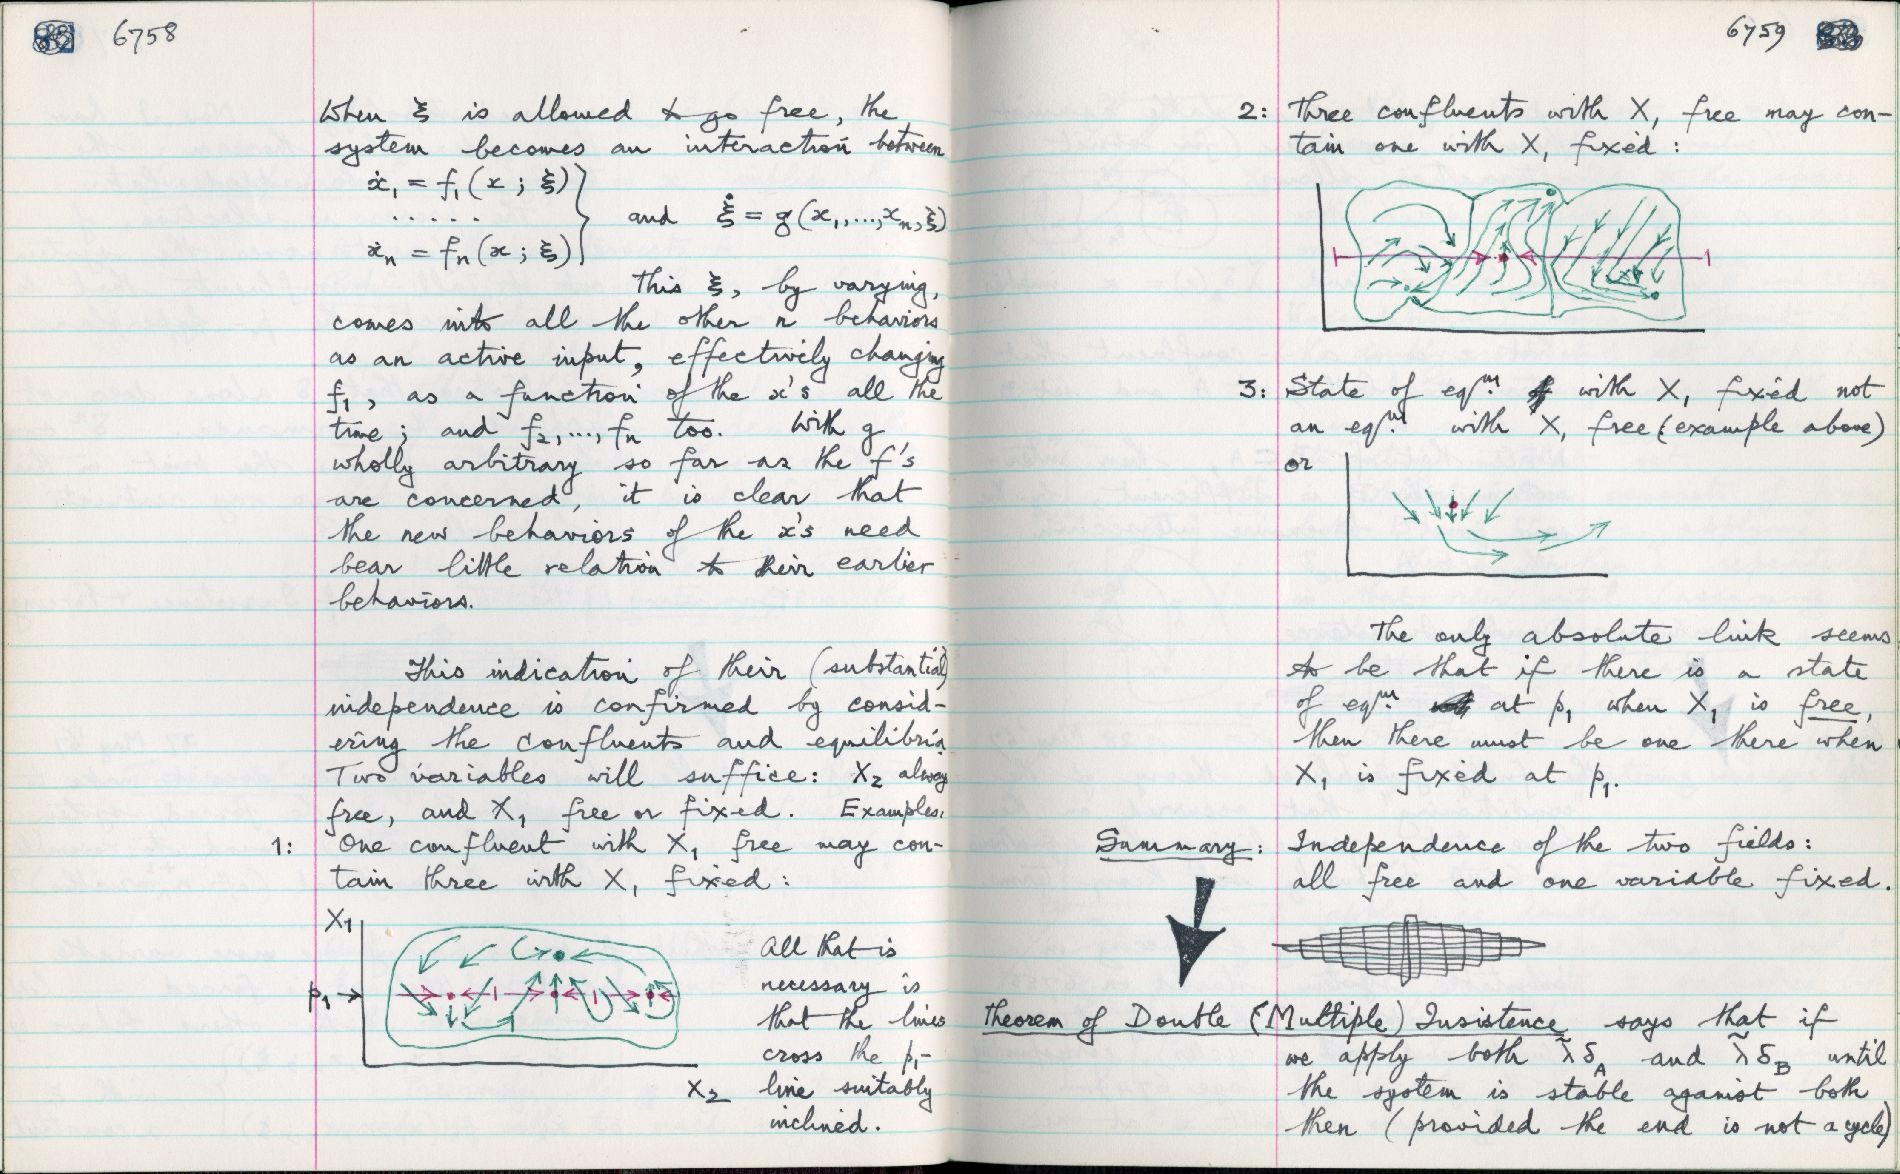 6758
When ξ is allowed to go free, the
system becomes an interaction between
ẋ₁ = f₁(x ; ξ)
. . . . .
ẋₙ = fₙ(x ; ξ)
and ξ̇ = g(x₁,...,xₙ, ξ)
This ξ, by varying,
comes into all the other n behaviors
as an active input, effectively changing
f₁, as a function of the x's all the
time; and f₂,...,fₙ too. With g
wholly arbitrary so far as the f's
are concerned, it is clear that
the new behaviors of the x's need
bear little relation to their earlier
behaviors.
This indication of their (substantial)
independence is confirmed by consid-
ering the confluents and equilibria
Two variables will suffice: X₂ always
free, and X₁ free or fixed. Examples:
1: One confluent with X₁ free may con-
tain three with X₁ fixed:
X₁
p₁ →
X₂
All that is
necessary is
that the lines
cross the p₁-
line suitably
inclined.
6759
2: Three confluents with X₁ free may con-
tain one with X₁ fixed:
3: State of eqᵐ. with X₁ fixed not
an eqᵐ. with X₁ free (example above)
or
The only absolute link seems
to be that if there is a state
of eqᵐ. at p₁ when X₁ is free,
then there must be one there when
X₁ is fixed at p₁.
Summary: Independence of the two fields:
all free and one variable fixed.
Theorem of Double (Multiple) Insistence says that if
we apply both λ̃δ_A and λ̃δ_B until
the system is stable against both
then (provided the end is not a cycle)